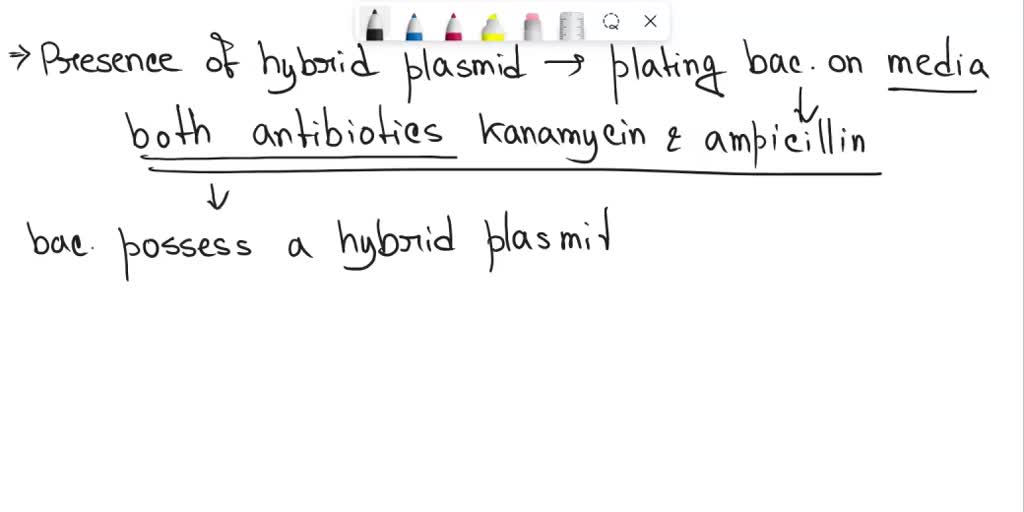 ⇒ Presence of hybrid plasmid → plating bac. on media
both antibiotics kanamycin & ampicillin
bac. possess a hybrid plasmid